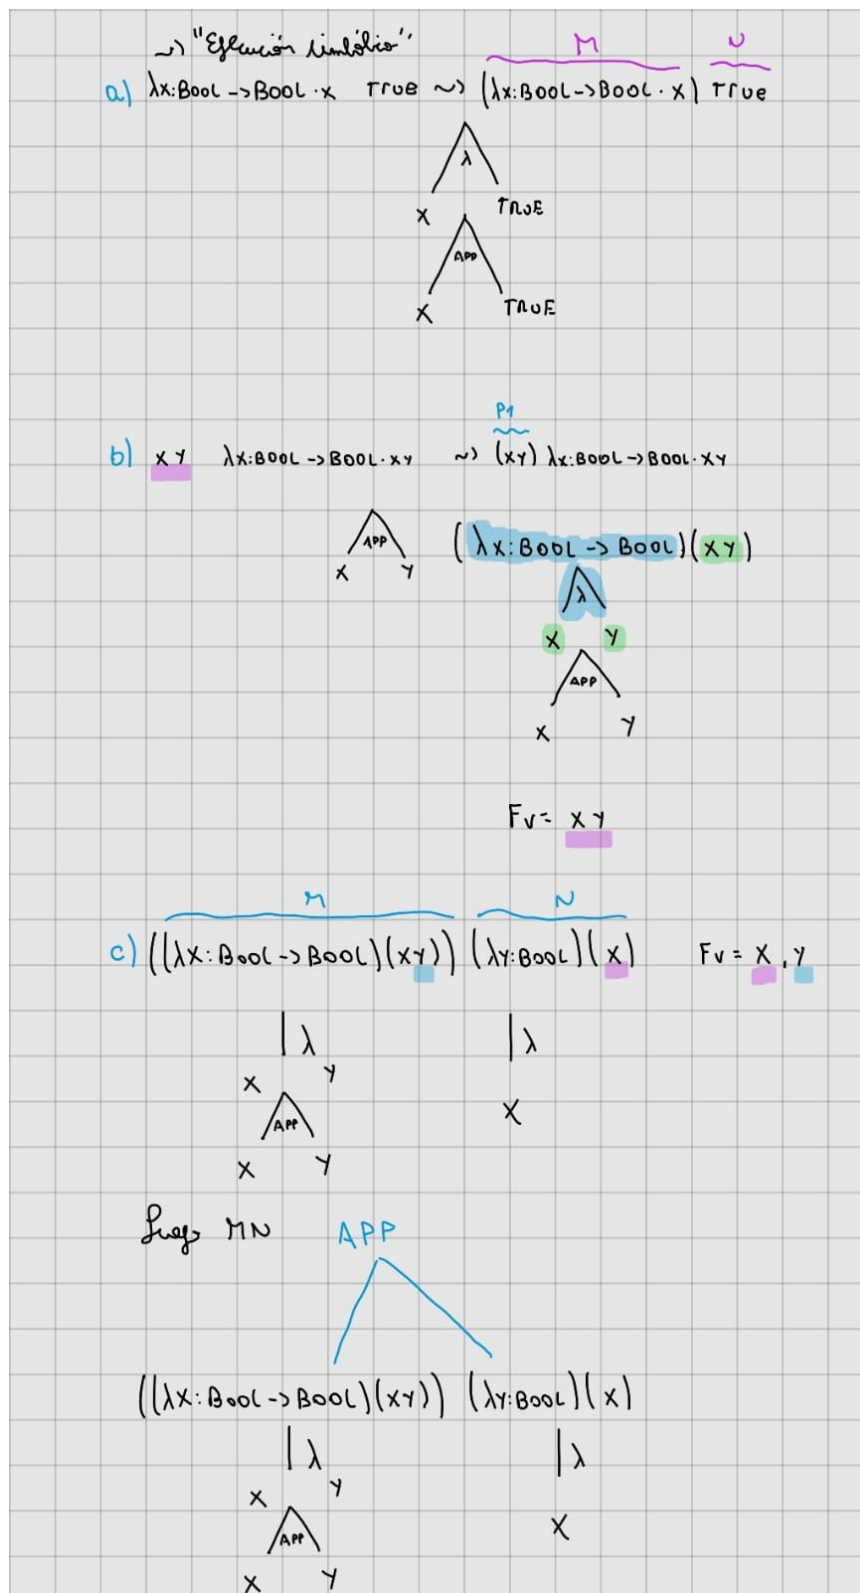 ~> "Ejecución simbólica"
M N
a) λx:Bool->Bool·x True ~> (λx:Bool->Bool·x) True
λ
x TRUE
APP
x TRUE
P1
b) xy λx:Bool->Bool·xy ~> (xy) λx:Bool->Bool·xy
(λx:Bool->Bool)(xy)
APP
x y
λ
x y
APP
x y
Fv= x y
M N
c) ((λx:Bool->Bool)(xy)) (λy:Bool)(x) Fv = x , y
λ λ
x y
x
APP
x y
Luego MN APP
((λx:Bool->Bool)(xy)) (λy:Bool)(x)
λ λ
x y
x
APP
x y